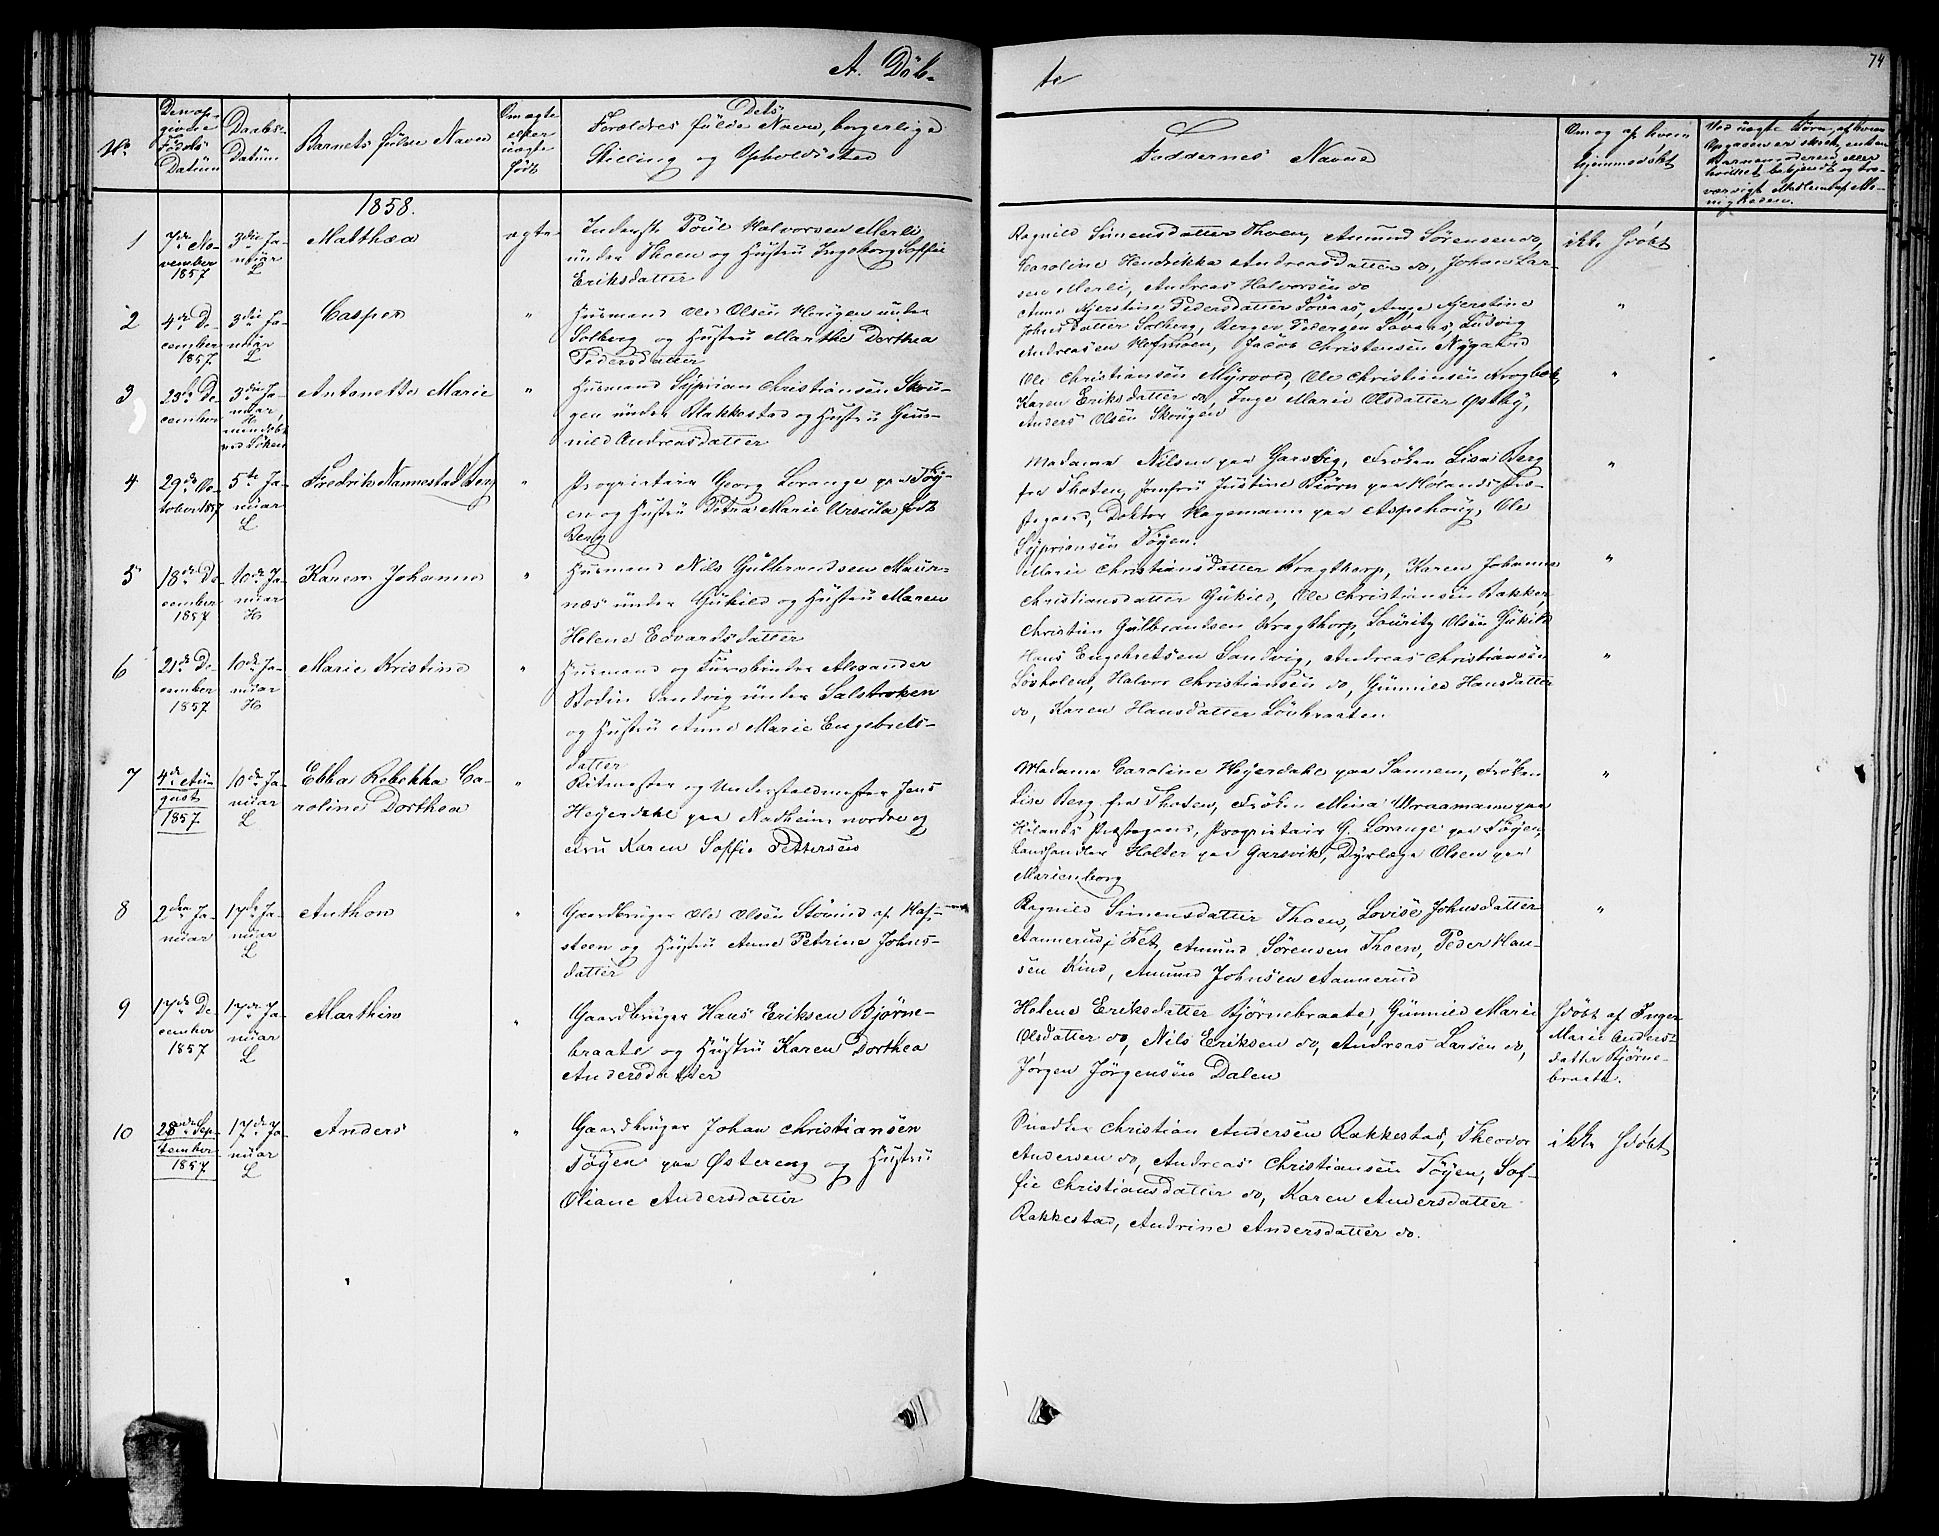 A. Døb-
te
74
No
Den op-
givne
Fødsels
Datum
Daabs-
Datum
Barnets fulde Navn
Om ægte
eller
uægte
født
Dets
Forældres fulde Navn, borgerlige
Stilling og Opholdssted
Faddernes Navne
Om og af hvem
hjemmedøbt
1858.
1
7de No-
vember
1857
3die Ja-
nuar
L
Matthæa
ægte
Inderste Poul Halvorsen Merli
under Thoen og Hustru Ingeborg Soffie
Eriksdatter
Ragnild Simensdatter Thoen, Amund Sørensen do,
Caroline Hendrikka Andreasdatter do, Johan Lar-
sen Merli, Andreas Halvorsen do
ikke hjdøbt
2
4de De-
cember
1857
3die Ja-
nuar
L
Casper
"
Husmand Ole Olsen Haugen under
Solberg og Hustru Marthe Dorthea
Pedersdatter
Anne Kjerstine Pedersdatter Sovaas, Inge Kjerstine
Johnsdatter Solberg, Berger Pedersen Sovaas, Ludvig
Andreasen Hofmoen, Jacob Christensen Nygaard
"
3
23de De-
cember
3die Ja-
nuar,
H
Antonette Marie
"
Husmand Syprian Christiansen Skou-
gen under Makkestad og Hustru Gun-
nild Andreasdatter
Ole Christiansen Myrvold, Ole Christiansen Krogbæk,
Karen Eriksdatter do, Inge Marie Olsdatter Opsby,
Anders Olsen Skougen
"
4
29de Oc-
tober 1857
5te Ja-
nuar
L
Fredrik Nannestad Berg
"
Proprietair Georg Lorange paa Tøy-
en og Hustru Petra Marie Ursula født
Berg
Madame Nilsen paa Garsvig, Frøken Lise Berg
fra Thoten, Jomfru Justine Biørn paa Hølands Præ-
stegaard, Doktor Hagemann paa Aspehoug, Ole
Sypriansen Tøyen.
"
5
18de De-
cember
1857
10de Ja-
nuar
H
Karen Johanne
"
Husmand Nils Gulbrandsen Maur-
næs under Gukild og Hustru Maren
Helene Edvardsdatter
Marie Christiansdatter Kragthorp, Karen Johanne
Christiansdatter Gukild, Ole Christiansen Bakke,
Christian Gulbrandsen Kragthorp, Louritz Olsen Gukild
"
6
21de De-
cember
1857
10de Ja-
nuar
H
Marie Kristine
"
Husmand og Alexander
Bodin Sandvig under Salstroken
og Hustru Anne Marie Engebrets-
datter
Hans Engebretsen Sandvig, Andreas Christiansen
Løvholen, Halvor Christiansen do, Gunnild Hansdatter
do, Karen Hansdatter Løvbraaten
"
7
4de Au-
gust
1857
10de Ja-
nuar
L
Ebba Rebekka Ca-
roline Dorthea
"
Ritmester og Underfoldmester Jens
Heyerdahl paa Nadheim nordre og
Fru Karen Soffie Pettersen
Madame Caroline Heyerdahl paa Sannem, Frøken
Lise Berg fra Thoten, Frøken Mina Abraamann paa
Hølands Præstegaard, Proprietair G. Lorange paa Tøyen,
Landhandler Holter paa Garsvik, Dyrlæge Olsen paa
Marienborg
"
8
2den Ja-
nuar
17de Ja-
nuar
L
Anthon
"
Gaardbruger Ole Olsen Stømnd af Haf-
steen og Hustru Anne Petrine Johns-
datter
Ragnild Simensdatter Thoen, Lovise Johnsdatter
Aannerud i Fet, Amund Sørensen Thoen, Peder Han-
sen Kind, Amund Johnsen Aannerud
"
9
17de De-
cember
1857
17de Ja-
nuar
L
Marthin
"
Gaardbruger Hans Eriksen Bjørne-
braate og Hustru Karen Dorthea
Andersdatter
Helene Eriksdatter Bjørnebraate, Gunnild Marie
Olsdatter do, Nils Eriksen do, Andreas Larsen do,
Jørgen Jørgensen Dalen
hjdøbt af Inger
Marie Anders-
datter Bjørne-
braate.
10
28de Sep-
tember
1857
17de Ja-
nuar
L
Anders
"
Gaardbruger Johan Christiansen
Tøyen paa Østereng og Hustru
Oliane Andersdatter
Snedker Christian Andersen Rakkestad, Theodor
Andersen do, Andreas Christiansen Tøyen, Sof-
fie Christiansdatter do, Karen Andersdatter
Rakkestad, Andrine Andersdatter do.
ikke hjdøbt